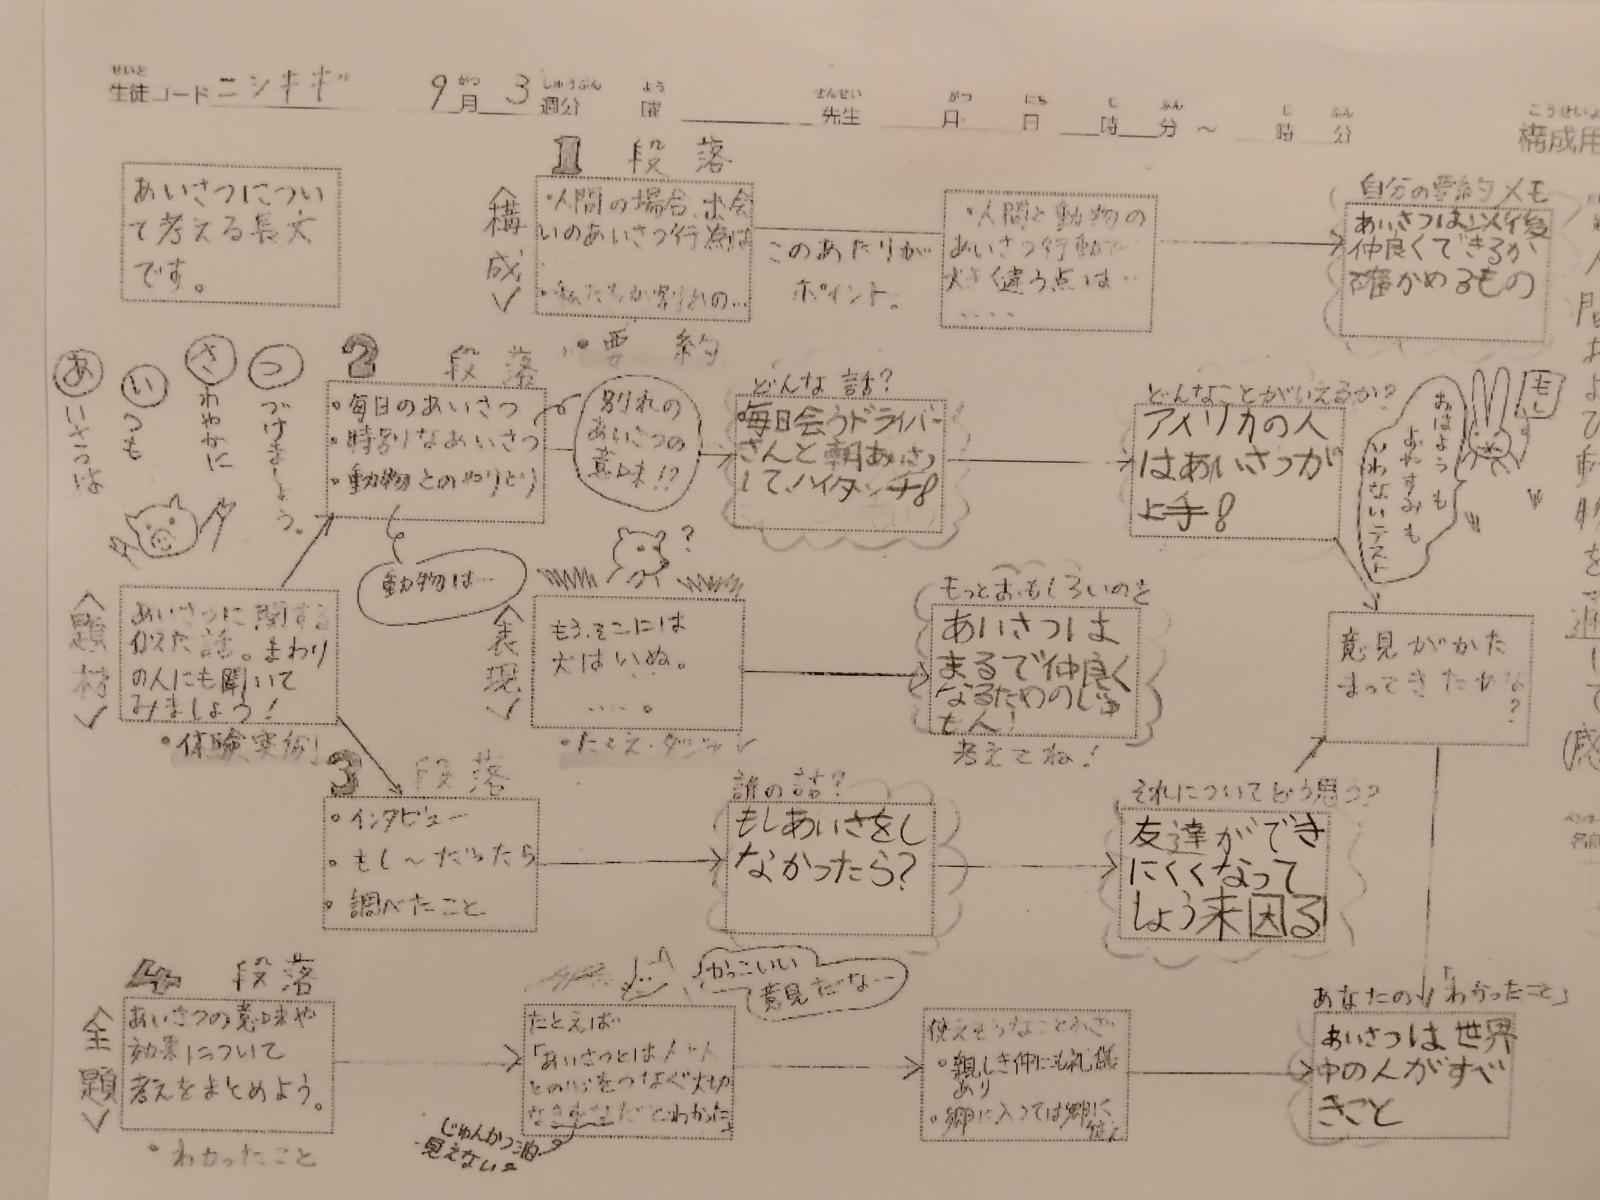 せいと がつ しゅうぶん よう せんせい がつ にち じ ふん じ ふん
生徒コード ニシキギ 9月 3週分 曜 先生 月 日 時 分 ～ 時 分
こうせいよ
構成用
あいさつについ
て考える長文
です。
1 段落
＜構成＞
・人間の場合、出会
いのあいさつ行為は
・私たちが別れの…
このあたりが
ポイント。
・人間と動物の
あいさつ行動で
大きく違う点は…
‥‥
自分の要約メモ
あいさつは以後
仲良くできるか
確かめるもの
・要約
あいさつは
いつも
さわやかに
つづけましょう。
2 段落
・毎日のあいさつ
・特別なあいさつ
・動物とのやりとり
別れの
あいさつの
意味!?
動物は…
どんな話?
・毎日会うドライバー
さんと朝あいさつ
して、ハイタッチ!
どんなことがいえるか?
アメリカの人
はあいさつが
上手!
もし
おはようも
おやすみも
いわないテスト
＜題材＞
あいさつに関する
似た話。まわり
の人にも聞いて
みましょう!
・体験実例!
＜表現＞
?
もう、そこには
犬はいぬ。
‥‥。
・たとえ・ダジャレ
もっとおもしろいのを
あいさつは
まるで仲良く
なるためのじゅ
もん!
考えてね!
意見がかた
まってきたかな
?
3 段落
・インタビュー
・もし～だったら
・調べたこと
誰の話?
もしあいさをし
なかったら?
それについてどう思う?
友達ができ
にくくなって
しょう来困る
4 段落
＜全題＞
あいさつの意味や
効果について
考えをまとめよう。
・わかったこと
かっこいい
意見だな…
たとえば
「あいさつとは人と人
との心をつなぐ大切
なきずなだとわかった」
じゅんかつ油
見えない
使えそうなことわざ
・親しき仲にも礼儀
あり
・郷に入っては郷に
従え
あなたの「わかったこと」
あいさつは世界
中の人がすべ
きこと